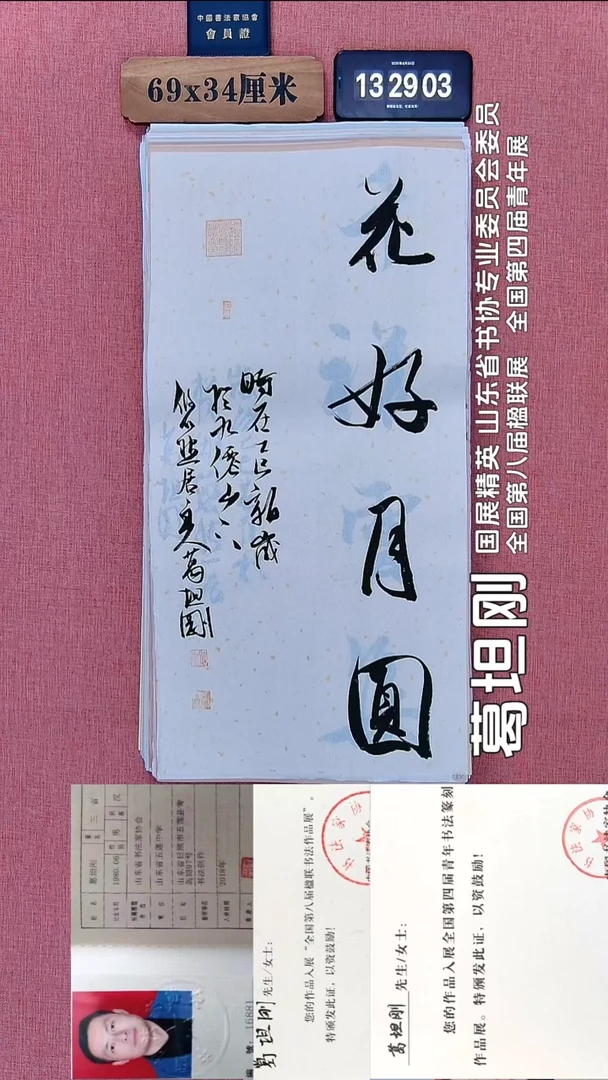 中國書法家協會
會員證
69x34厘米
13 29 03
花好月圓
時在乙巳新歲
於九僊山下
悠然居主人葛坦剛
葛坦刚
国展精英 山东省书协专业委员会委员
全国第八届楹联展 全国第四届青年展
葛坦刚
山东省书法家协会
山东省五莲中学
2018年
葛坦刚 先生/女士：
您的作品入展“全国第八届楹联书法作品展”。
特颁发此证，以资鼓励！
葛坦刚 先生/女士：
您的作品入展全国第四届青年书法篆刻
作品展。特颁发此证，以资鼓励！